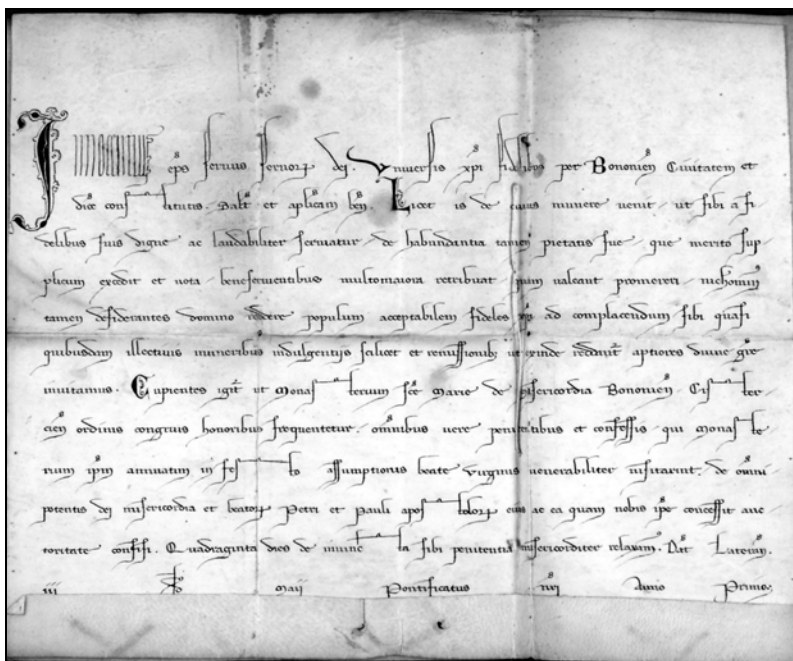 eps servus servor dei. Universis xpi fidelibus per Bononien Civitatem et
dioc constitutis. Salt et aplicam ben. Licet is de cuius munere venit ut sibi a fi
delibus suis digne ac laudabiliter serviatur de habundantia tamen pietatis sue que merito sup
plicum excedit et vota beneservientibus multomaiora retribuat quam valeant promereri nichominus
tamen desiderantes domino reddere populum acceptabilem fideles xpi ad complacendum sibi quasi
quibusdam illectivis muneribus indulgentijs scilicet et remissionib ut exinde reddant aptiores divine gre
invitamus. Cupientes igit ut Monasterium sce Marie de misericordia Bononien Cister
cien ordinis congruis honoribus frequentetur. omnibus vere penitentibus et confessis qui monaste
rium ipm annuatim in festo assumptionis beate virginis venerabiliter visitarint. de omni
potentis dei misericordia et beator Petri et Pauli apostolor eius ac ea quam nobis ipe concessit auc
toritate confisi. Quadraginta dies de iniuncta sibi penitentia misericorditer relaxam. Dat Lateran.
iii Maij Pontificatus nri Anno Primo.